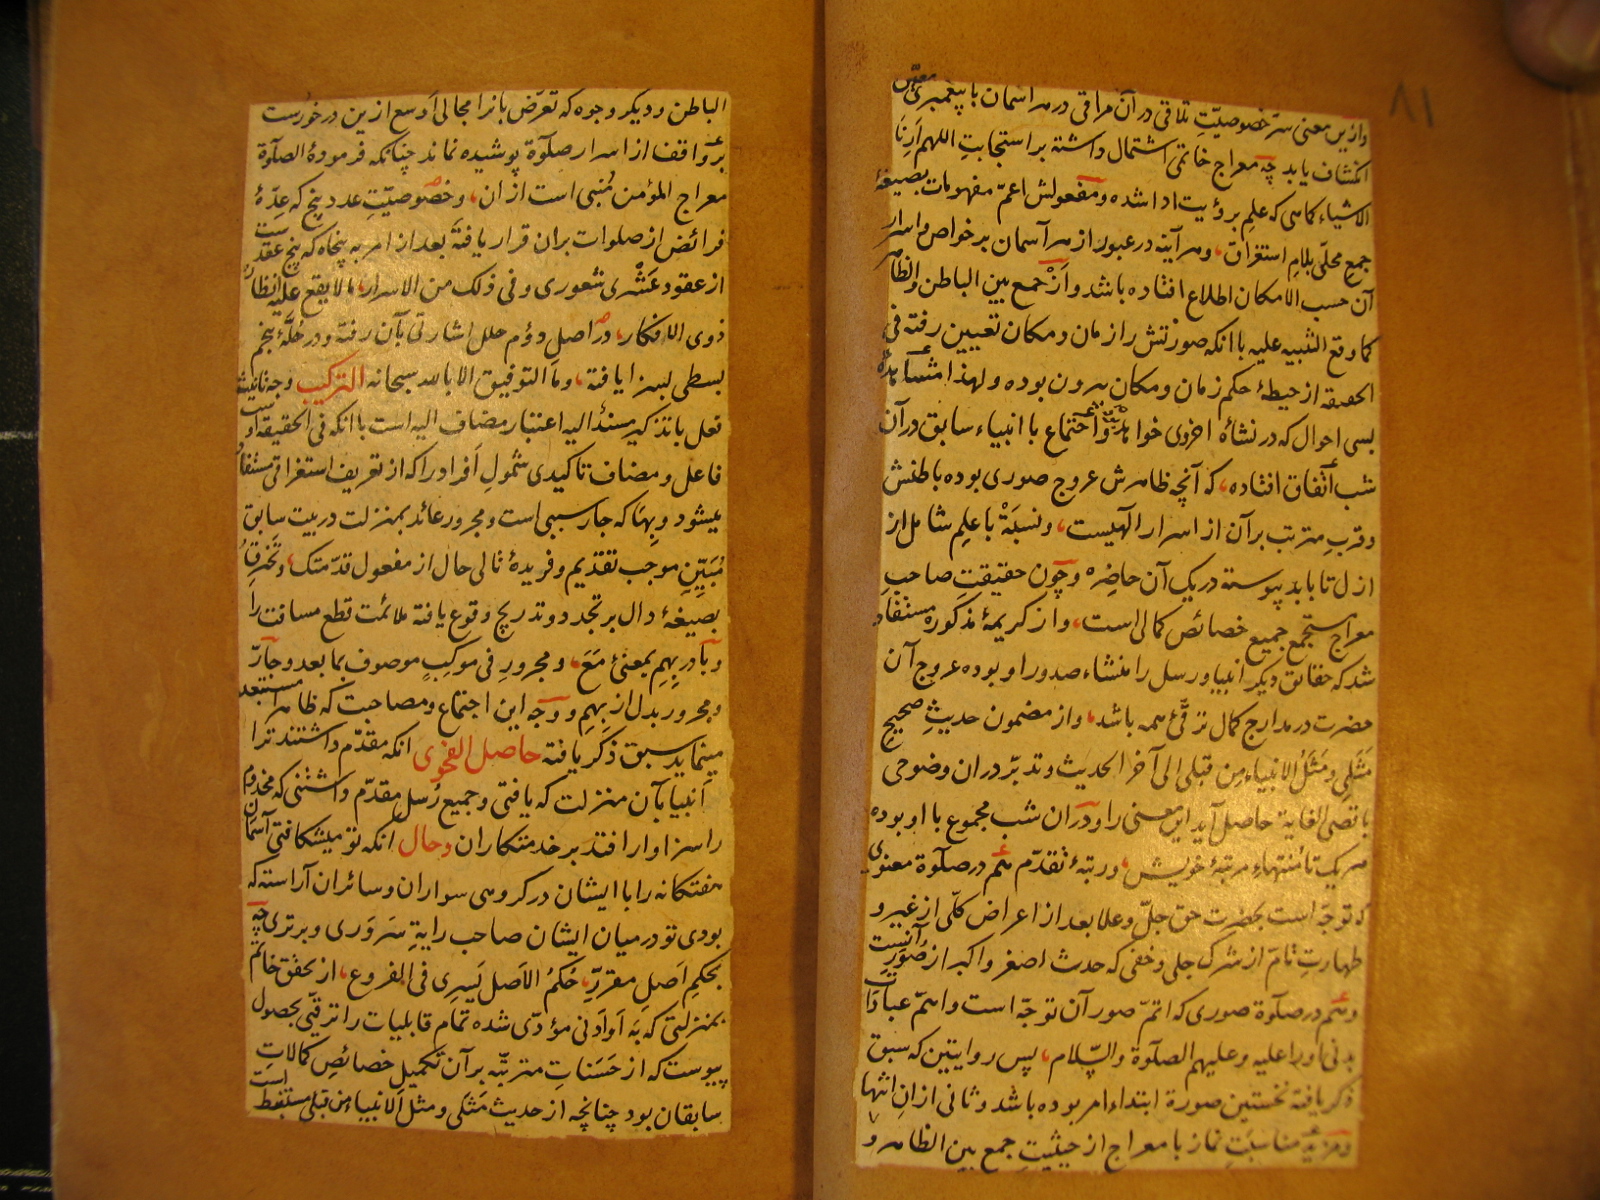 ۸۱
وازین معنی سرّ خصوصیّتِ تلاقی در آن مراقی در هر اسمان با پیغمبری معیّن
انکشاف یابد چه معراج خاتمی اشتمال داشته بر استجابتِ اللهم اَرِنَا
الاشیاء کماهی که علم برؤیت ادا شده و مفعولش اعمّ مفهومات بصیغهٔ
جمع محلّی بلامِ استغراق، و هر آینه در عبور از هر آسمان بر خواص و اسرار
آن حسب الامکان اطلاع افتاده باشد و اَنْ جمع بین الباطن و الظاهر
کما وقع التنبیه علیه با انکه صورتش را زمان و مکان تعیین رفته فی
الحقیقه از حیطهٔ حکم زمان و مکان بیرون بوده و لهذا مشاهدهٔ
بسی احوال که در نشأه اخروی خواهد بود و اجتماع با انبیاء سابق در آن
شب اتّفاق افتاده، که آنچه ظاهرش عروج صوری بوده باطنش
و قربِ مترتب بر آن از اسرار الٓهیست، و نسبَةْ با علم شامل از
ازل تا بابد پیوسته دریک آن حاضره و چون حقیقتِ صاحبِ
معراج مستجمع جمیع خصائص کمالی است، و از کریمهٔ مذکوره مستفاد
شد که حقائق دیگر انبیا و رسل را منشاء صدور او بوده عروج آن
حضرت در مدارج کمال ترقّیٔ همه باشد، و از مضمون حدیثِ صحیحِ
مَثَلِی و مَثَلُ الانبیاء مِن قبلی الی آخر الحدیث و تدبّر در ان وضوحی
باقصی الغایة حاصل آید این معنی را و در ان شب مجموع با او بوده
هریک تا مُنتهاءِ مرتبهٔ خویش، و رتبهٔ تقدّم هم در صلٰوة معنوی
که توجّه است بحضرت حق جلّ و علا بعد از اعراض کلّی از غیر و
طهارتِ تامّ از شرک جلی و خفی که حدث اصغر و اکبر از صور آنست
و هم در صلٰوة صوری که اتمّ صور آن توجّه است و اهمّ عباداتِ
بدنی او را علیه و علیهم الصلٰوة و السّلام، پس روایتین که سبق
ذکر یافته نخستین صورة ابتداء امر بوده باشد و ثانی از ان انتها
و مزید مناسبَتِ نماز با معراج از حیثیتِ جمع بین الظاهر و
الباطن و دیگر وجوه که تعرّض بانرا مجالی اَوسع ازین درخورست
بر واقفِ از اسرار صلٰوة پوشیده نماند چنانکه فرمودهٔ الصلٰوة
معراج المؤمن مُنبی است از ان، و خصوصیّتِ عدد پنج که عِدّهٔ
فرائض از صلوات بران قرار یافته بعد از امر به پنجاه که پنج عقدست
از عقود عَشْری شعوری و فی ذلک من الاسرار، ما لا یقع علیه انظارُ
ذوی الافکار، در اصلِ دوُم حلل اشارتی بآن رفته و در حُلّهٔ پنجم
بسطی بسزا یافته، و ما التوفیق الا بالله سبحانه الترکیب وجه تانیثِ
فعل با تذکیر مسندٌ الیه اعتبار مضاف الیه است با انکه فی الحقیقه اوست
فاعل و مضاف تاکیدی شمولِ اَفراد را که از تعریف استغراقی مستفاد
میشود و بِهَا که جار سببی است و مجرور عائد بمنزلت در بیت سابق
مُبَیّنِ موجب تقدیم و فریدهٔ تالی حال از مفعول قدّمتک، و تَخرِقُ
بصیغهٔ دال بر تجدد و تدریج وقوع یافته ملائمت قطع مسافت را
و با در بِهِم بمعنیٔ مَعَ، و مجرورِ فی موکبٍ موصوف بما بعد و جارّ
و مجرور بدل از بِهِم و وجه این اجتماع و مصاحبت که ظاهرا مستبعد
مینماید سبق ذکر یافته حاصل الفحوی انکه مقدّم داشتند ترا
انبیا بآن منزلت که یافتی و جمیع رُسل مقدّم داشتنی که مخدوم
را سزاوار افتد بر خدمتکاران و حال انکه تو میشکافتی آسمان
هفتکانه را با ایشان در کروهی سواران و سائران آراسته که
بودی تو در میان ایشان صاحب رایةِ سَرْوَری و برتری چه
بحکم اَصلِ مقررّ، حُکمُ الاَصلِ یَسرِی فی الفروع، از تحقق خاتم
بمنزلتی که به اَو اَدنی مؤدّی شده تمام قابلیات را ترقّیی بحصول
پیوست که از حَسَناتِ مترتّبه بر آن تکمیل خصائصِ کمالاتِ
سابقان بود چنانچه از حدیث مَثَلی و مثل الانبیاء من قبلی مستنبط است